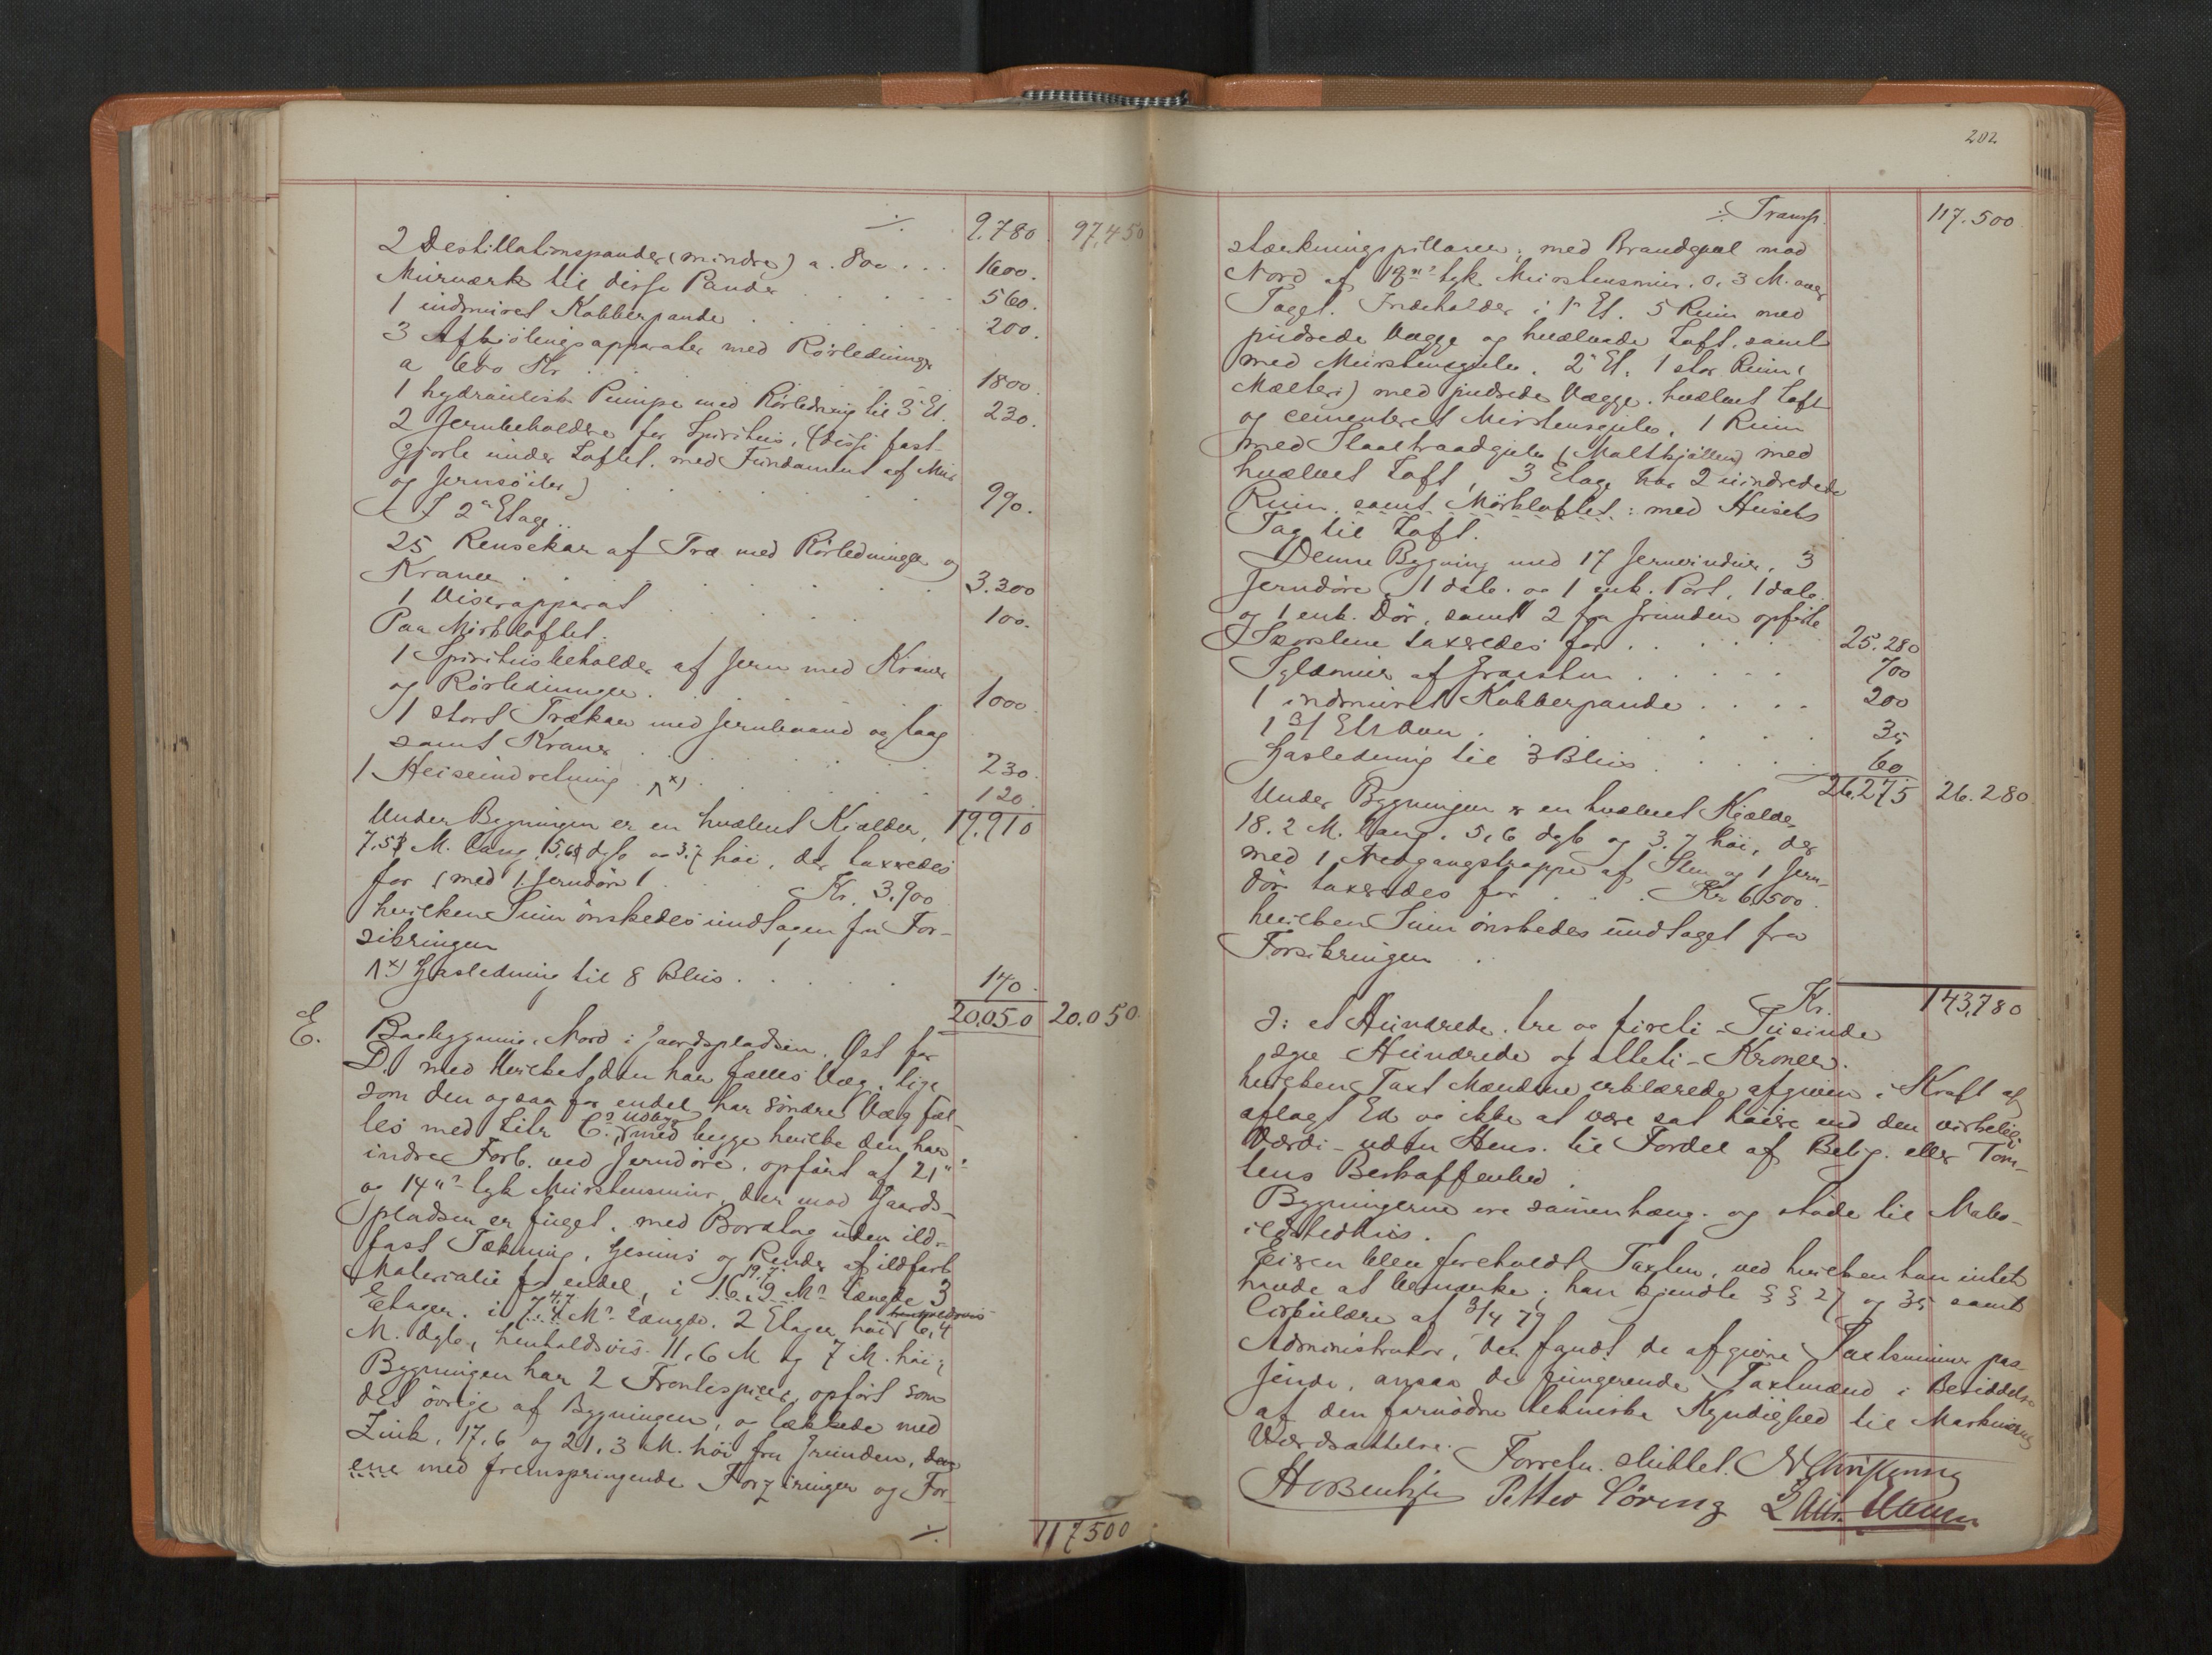 ÷ 9.780. 97,450
2 Destillationspander (mindre) a. 800 . . . 1600.
Murværk til disse Pander . . . . . 560.
1 indmuret Kobberpande . . . . . . . 200.
3 Afkjölingsapparater med Rörledninger
a 600 Kr . . . . . . . 1800.
1 hydraulisk Pumpe med Rörledning til 3' Et. 230.
2 Jernbeholdere for Spiritus, (disse fast-
gjorte under Loftet, med Fundament af Mur
og Jernsöiler) . . . . . . . 990.
I 2' Etage.
25 Rensekar af Træ med Rörledninger og
Kraner . . . . . . . . . 3.300
1 Viserapparat . . . . . . . 100.
Paa Mörkloftet.
1 Spiritusbeholder af Jern med Kraner
og Rörledninger . . . . . . 1000.
1 stort Trækar med Jernbaand og laag
samt Kraner . . . . . . . 230.
1 Heiseindretning . x) . . . . . 120.
19.910
Under Bygningen er en hvælvet Kjælder,
7.5 M. lang, 5,6 dyb og 3.7 höi, der taxeredes
for (med 1 Jerndör) . . . . Kr. 3.900
hvilken Sum önskedes undtagen fra For-
sikringen
x) Gasledning til 8 Blus . . . . . 140.
20,050 20.050.
E. Bagbygning, Nord i Gaardspladsen. Öst for
D. med hvilket den har fælles Væg, lige
som den ogsaa for endel har söndre Væg fæl-
les med Litr C.s Udbyg. med begge hvilke den har
indre Forb. ved Jerndöre. opfört af 21"
og 14"s tyk Murstensmur, der mod Gaards-
pladsen er fuget. med Bordtag uden ild-
fast Tækning, Gesims og Render af ildfast
Materialie for endel, i 16,9 19.7 Ms længde 3
Etager. i 7.4 4,7 Ms længde. 2 Etager höi henholdsvis 6,4
M. dyb, henholdsvis 11,6 M og 7 M. höi;
Bygningen har 2 Frontispicer, opfört som
det övrige af Bygningen, og tækkede med
Zink, 17,6 og 21,3 M. höi fra Grunden, den
ene med fremspringende Forziringer og For-
÷ 117500
202
÷ Transp. 117.500
stærkningspillarer; med Brandgavl mod
Nord af 18"s tyk Murstensmur. 0,3 M. over
Taget. Indeholder i 1' Et. 5 Rum med
pudsede Vægge og hvælvede Loft, samt
med Murstensgulv. 2' Et. 1 stor Rum (
Mælteri) med pudsede Vægge. hvælvet Loft
og cementeret Murstensgulv, 1 Rum
med Staaltraadgulv (Maltkjölle) med
hvælvet Loft, 3 Etage har 2 uindredede
Rum. samt Mörkloftet: med Husets
Tag til Loft.
Denne Bygning med 17 Jernvinduer, 3
Jerndöre, 1 dob. og 1 enk. Port, 1 dob.
og 1 enk. Dör, samt 2 fra Grunden opförte
Skorstene taxeredes for . . . . . 25.280
Syldmur af Graasten . . . . . 700
1 indmuret Kobberpande . . . . 200
1 3/ Et Ovn . . . . . . . 35
Gasledning til 3 Blus . . . . . 60
26,275 26.280.
Under Bygningen er en hvælvet Kjælder
18.2 M. lang, 5,6 dyb og 3.7 höi, der
med 1 Nedgangstrappe af Sten og 1 Jern-
dör taxeredes for . . . Kr 6.500.
hvilken Sum önskedes undtaget fra
Forsikringen .
Kr. 143,780
o: et Hundrede, tre og firti - Tusinde
syv Hundrede og otteti - Kroner.
hvilken Taxt Mændene erklærede afgiven i Kraft af
aflagt Ed og ikke at være sat höiere end den virkelige
Værdi - uden Hens. til Fordel af Belig. eller Tom-
tens Beskaffenhed.
Bygningerne ere sammenhæng. og stöde til Nabo-
ildstedhus.
Eieren blev foreholdt Taxten, ved hvilken han intet
havde at bemærke; han kjendte §§ 27 og 35 samt
Cirkulære af 3/4 79
Administrator, der fandt de afgivne Taxtsummer pas-
sende, ansaa de fungerende Taxtmænd i Besiddelse
af den fornödne tekniske Kyndighed til Maskinernes
Værdsættelse.
Forretn. sluttet. N Christensen
Petter Löring